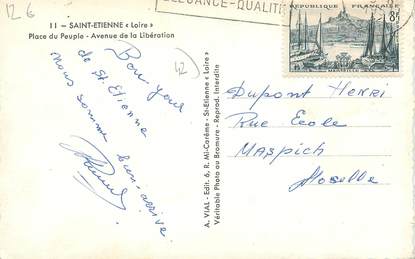 126
11 – SAINT-ETIENNE « Loire »
Place du Peuple - Avenue de la Libération
ÉLÉGANCE-QUALITÉ
REPUBLIQUE FRANÇAISE
8F
MARSEILLE
12
Bon jour
de St. Etienne
nous somme bien arrive
A. VIAL - Edit. 6, R. Mi-Carême - St-Etienne « Loire »
Véritable Photo au Bromure - Reprod. Interdite
Dupont Henri
Rue Ecole
Maspich
Moselle